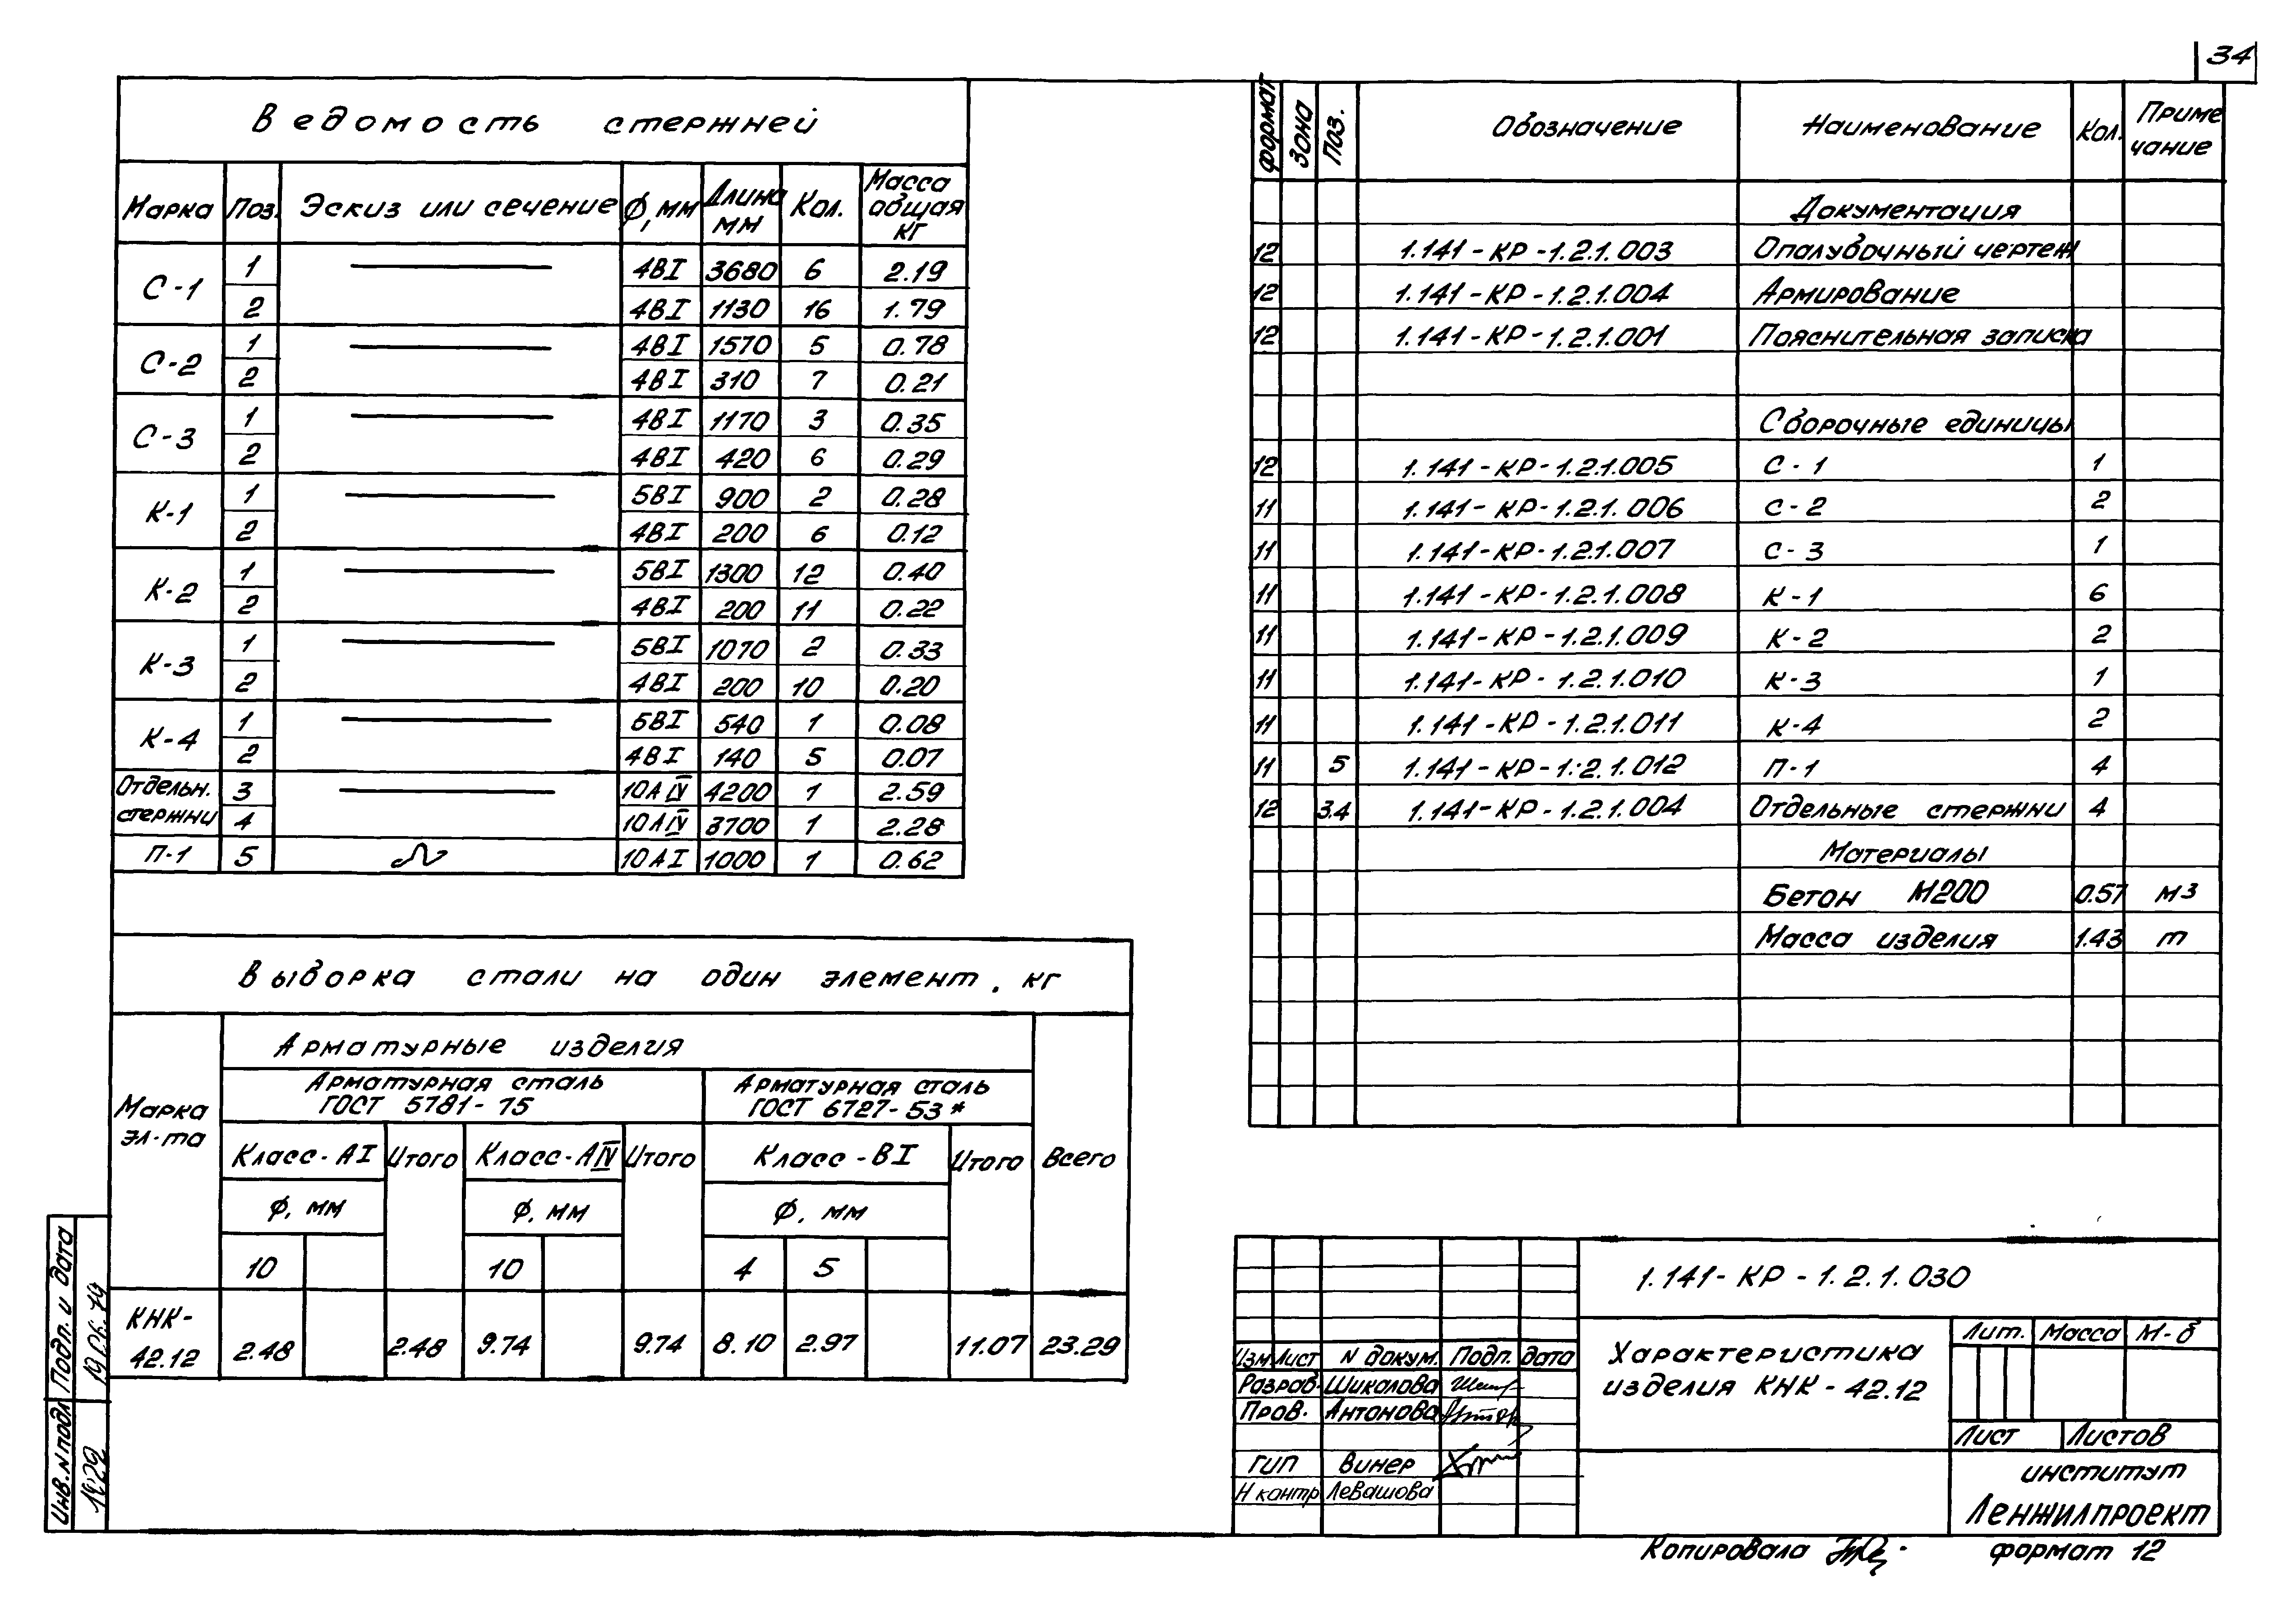 34
Ведомость стержней
Марка Поз. Эскиз или сечение ϕ, мм Длина мм Кол. Масса общая кг
С-1 1 4ВI 3680 6 2.19
2 4ВI 1130 16 1.79
С-2 1 4ВI 1570 5 0.78
2 4ВI 310 7 0.21
С-3 1 4ВI 1170 3 0.35
2 4ВI 420 6 0.29
К-1 1 5ВI 900 2 0.28
2 4ВI 200 6 0.12
К-2 1 5ВI 1300 12 0.40
2 4ВI 200 11 0.22
К-3 1 5ВI 1070 2 0.33
2 4ВI 200 10 0.20
К-4 1 5ВI 540 1 0.08
2 4ВI 140 5 0.07
Отдельн. стержни 3 10АIV 4200 1 2.59
4 10АIV 3700 1 2.28
П-1 5 10АI 1000 1 0.62
Выборка стали на один элемент, кг
Марка эл-та
Арматурные изделия
Арматурная сталь ГОСТ 5781-75
Арматурная сталь ГОСТ 6727-53*
Класс-АI Итого Класс-АIV Итого Класс-ВI Итого Всего
ϕ, мм ϕ, мм ϕ, мм
10 10 4 5
КНК-42.12 2.48 2.48 9.74 9.74 8.10 2.97 11.07 23.29
формат Зона Поз. Обозначение Наименование Кол. Примечание
Документация
12 1.141-КР-1.2.1.003 Опалубочный чертеж
12 1.141-КР-1.2.1.004 Армирование
12 1.141-КР-1.2.1.001 Пояснительная записка
Сборочные единицы
12 1.141-КР-1.2.1.005 С-1 1
11 1.141-КР-1.2.1.006 С-2 2
11 1.141-КР-1.2.1.007 С-3 1
11 1.141-КР-1.2.1.008 К-1 6
11 1.141-КР-1.2.1.009 К-2 2
11 1.141-КР-1.2.1.010 К-3 1
11 1.141-КР-1.2.1.011 К-4 2
11 5 1.141-КР-1.2.1.012 П-1 4
12 3.4 1.141-КР-1.2.1.004 Отдельные стержни 4
Материалы
Бетон М200 0.57 м3
Масса изделия 1.43 т
1.141-КР-1.2.1.030
Изм Лист N докум. Подп. дата
Разраб. Шикалова
Пров. Антонова
ГИП Винер
Н контр Левашова
Характеристика
изделия КНК-42.12
Лит. Масса М-б
Лист Листов
институт
Ленжилпроект
Копировала
формат 12
Инв. N подл Подп. и дата
19.06.79